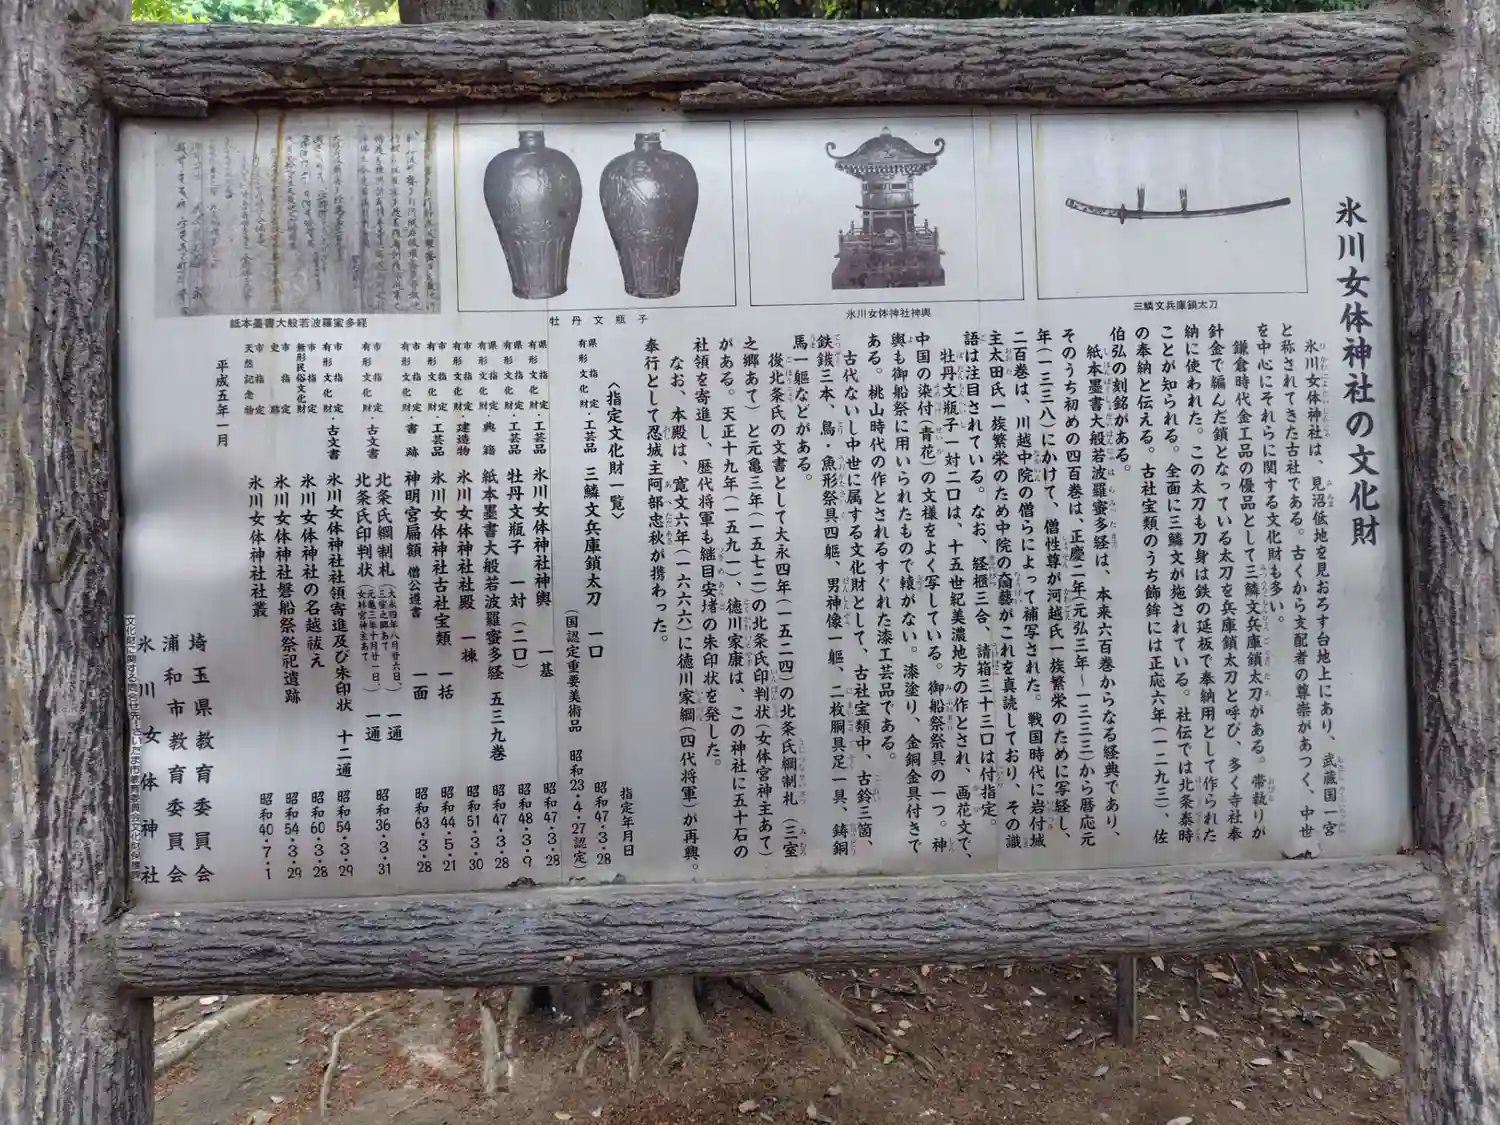 氷川女体神社の文化財
三鱗文兵庫鎖太刀
氷川女体神社神輿
牡丹文瓶子
紙本墨書大般若波羅蜜多経
氷川女体神社は、見沼低地を見おろす台地上にあり、武蔵国一宮
と称されてきた古社である。古くから支配者の尊崇があつく、中世
を中心にそれらに関する文化財も多い。
鎌倉時代金工品の優品として三鱗文兵庫鎖太刀がある。帯執りが
針金で編んだ鎖となっている太刀を兵庫鎖太刀と呼び、多く寺社奉
納に使われた。この太刀も刀身は鉄の延板で奉納用として作られた
ことが知られる。全面に三鱗文が施されている。社伝では北条泰時
の奉納と伝える。古社宝類のうち飾鉾には正応六年(一二九三)、佐
伯弘の刻銘がある。
紙本墨書大般若波羅蜜多経は、本来六百巻からなる経典であり、
そのうち初めの四百巻は、正慶二年・元弘三年~一三三三)から暦応元
年(一三三八)にかけて、僧性尊が河越氏一族繁栄のために写経し、
二百巻は、川越中院の僧らによって補写された。戦国時代に岩付城
主太田氏一族繁栄のため中院の奝藝がこれを真読しており、その識
語は注目されている。なお、経櫃三合、請箱三十三口は付指定。
牡丹文瓶子一対二口は、十五世紀美濃地方の作とされ、画花文で、
中国の染付(青花)の文様をよく写している。御船祭祭具の一つ。神
輿も御船祭に用いられたもので轅がない。漆塗り、金銅金具付きで
ある。桃山時代の作とされるすぐれた漆工芸品である。
古代ないし中世に属する文化財として、古社宝類中、古鈴三箇、
鉄鈸三本、鳥・魚形祭具四躯、男神像一躯、二枚胴具足一具、鋳銅
馬一躯などがある。
後北条氏の文書として大永四年(一五二四)の北条氏綱制札(三室
之郷あて)と元亀三年(一五七二)の北条氏印判状(女体宮神主あて)
がある。天正十九年(一五九一)、徳川家康は、この神社に五十石の
社領を寄進し、歴代将軍も継目安堵の朱印状を発した。
なお、本殿は、寛文六年(一六六六)に徳川家綱(四代将軍)が再興。
奉行として忍城主阿部忠秋が携わった。
〈指定文化財一覧〉 指定年月日
県指定有形文化財・工芸品 三鱗文兵庫鎖太刀 一口 昭和47・3・28
(国認定重要美術品 昭和23・4・27認定)
県指定有形文化財・工芸品 氷川女体神社神輿 一基 昭和47・3・28
県指定有形文化財・工芸品 牡丹文瓶子 一対(二口) 昭和48・3・9
県指定有形文化財・典籍 紙本墨書大般若波羅蜜多経 五三九巻 昭和47・3・28
県指定有形文化財・建造物 氷川女体神社社殿 一棟 昭和51・3・30
市指定有形文化財・工芸品 氷川女体神社古社宝類 一括 昭和44・5・21
市指定有形文化財・書跡 神明宮扁額 僧公遵書 一面 昭和63・3・28
市指定有形文化財・古文書 北条氏綱制札(大永四年八月廿六日、三室之郷あて) 一通
北条氏印判状(元亀三年十月廿一日、女体宮神主あて) 一通 昭和36・3・31
市指定有形文化財・古文書 氷川女体神社社領寄進及び朱印状 十二通 昭和54・3・29
市指定無形民俗文化財 氷川女体神社の名越祓え 昭和60・3・28
市指定史跡 氷川女体神社磐船祭祭祀遺跡 昭和54・3・29
市指定天然記念物 氷川女体神社社叢 昭和40・7・1
平成五年一月
埼玉県教育委員会
浦和市教育委員会
氷川女体神社
文化財に関する問合せ先:さいたま市教育委員会文化財保護課